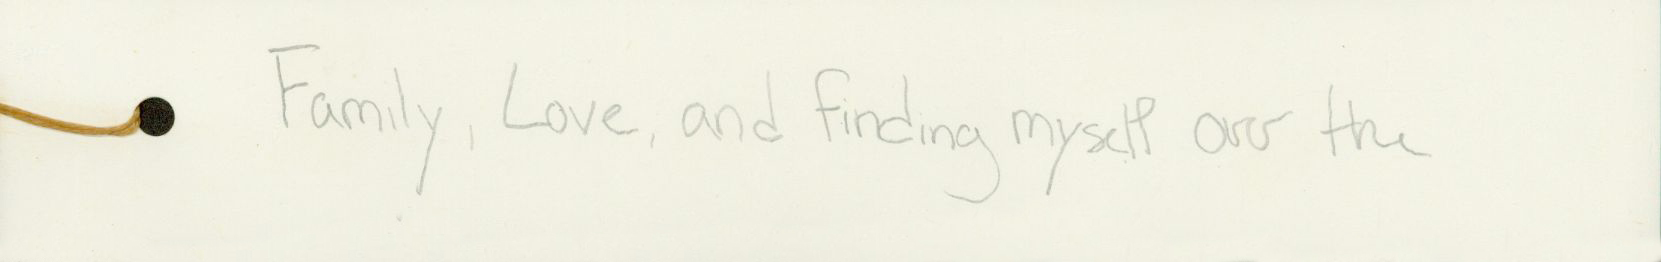 Family, Love, and finding myself over the